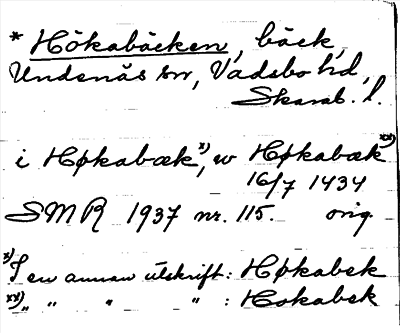 * Hökabäcken, bäck,
Undenäs sn, Vadsbo hd,
Skarab. l.
i Høkabæk x), w Høkabæk xx)
16/7 1434
SMR 1937 nr. 115. orig.
x) I en annan utskrift: Høkabek
xx) " " " " : Hokabek